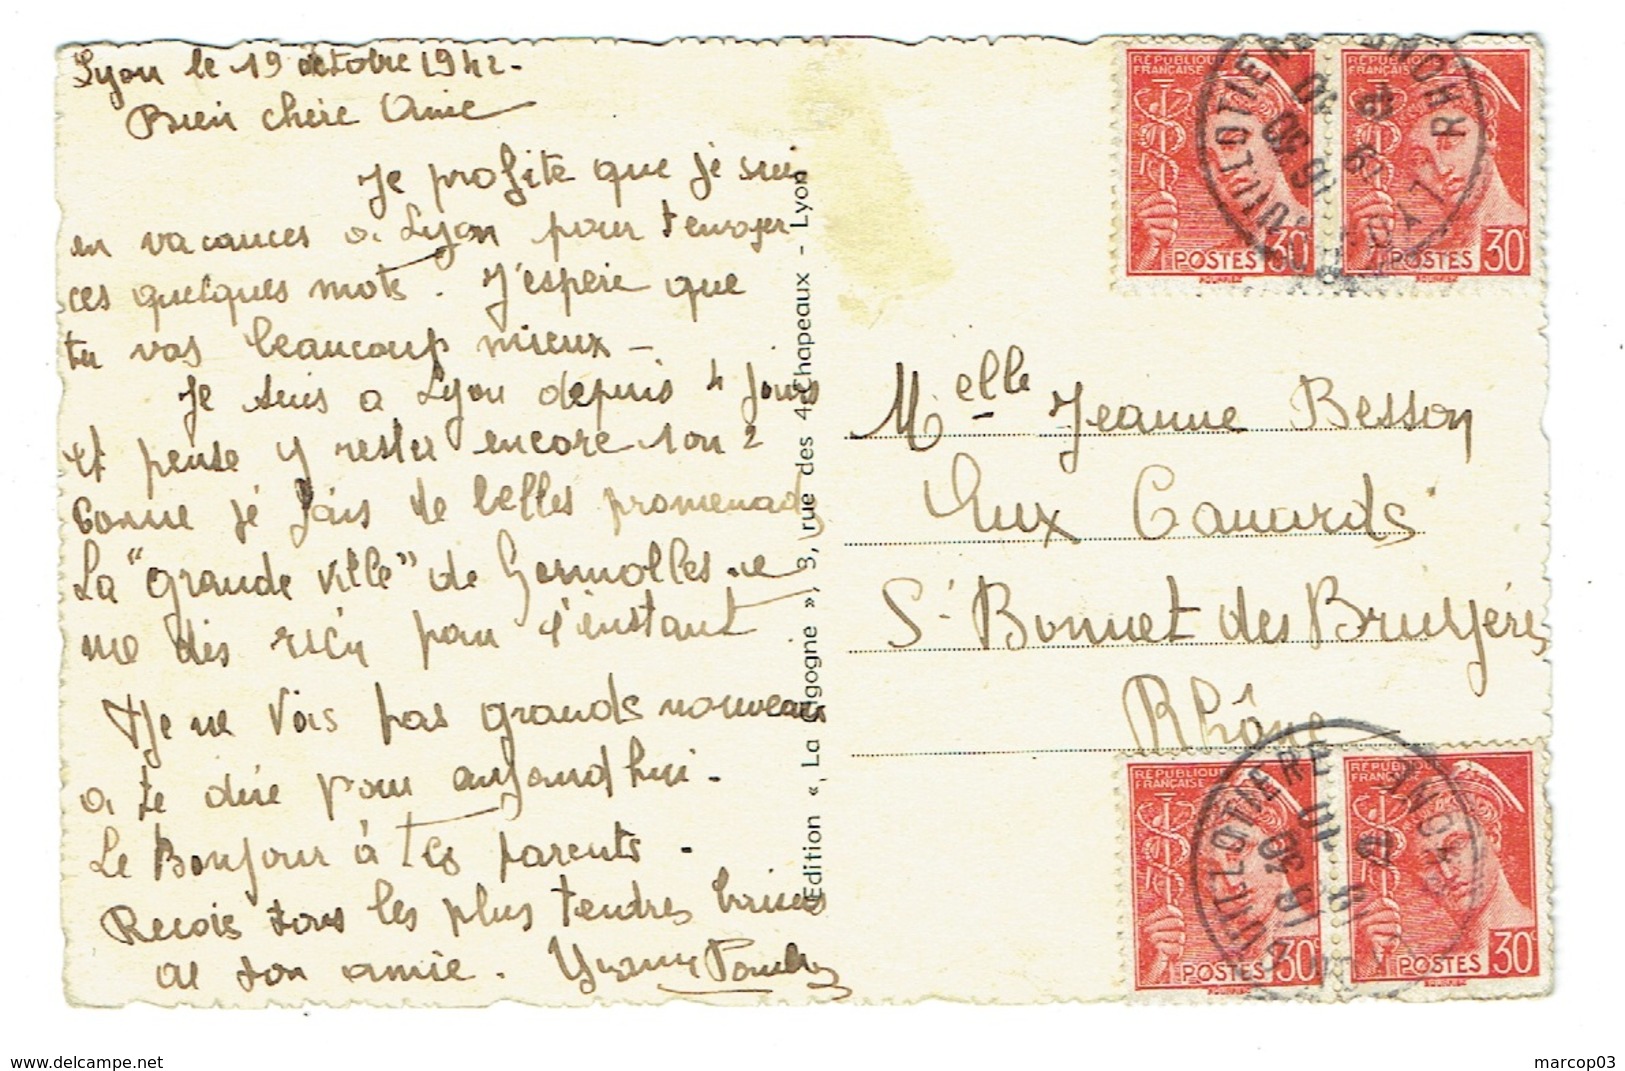 Lyon le 19 octobre 1942.
Bien chère Amie
Je profite que je suis
en vacances a Lyon pour t'envoyer
ces quelques mots. J'espère que
tu vas beaucoup mieux -
Je suis a Lyon depuis 4 jours
et pense y rester encore 1 ou 2
Comme je fais de belles promenades
La "grande ville" de Germolles ne
me dis rien pour l'instant
Je ne vois pas grands nouveaux
a te dire pour aujourd'hui.
Le Bonjour à tes parents.
Reçois tous les plus tendres baisers
de ton amie. Yvonne
Edition « La Cigogne », 3, rue des 4-Chapeaux - Lyon
RÉPUBLIQUE FRANÇAISE
POSTES 30c
RÉPUBLIQUE FRANÇAISE
POSTES 30c
LYON
RHONE
Melle Jeanne Besson
Aux Canards
St Bonnet des Bruyères
Rhône
RÉPUBLIQUE FRANÇAISE
POSTES 30c
RÉPUBLIQUE FRANÇAISE
POSTES 30c
http://www.delcampe.net
marcop03